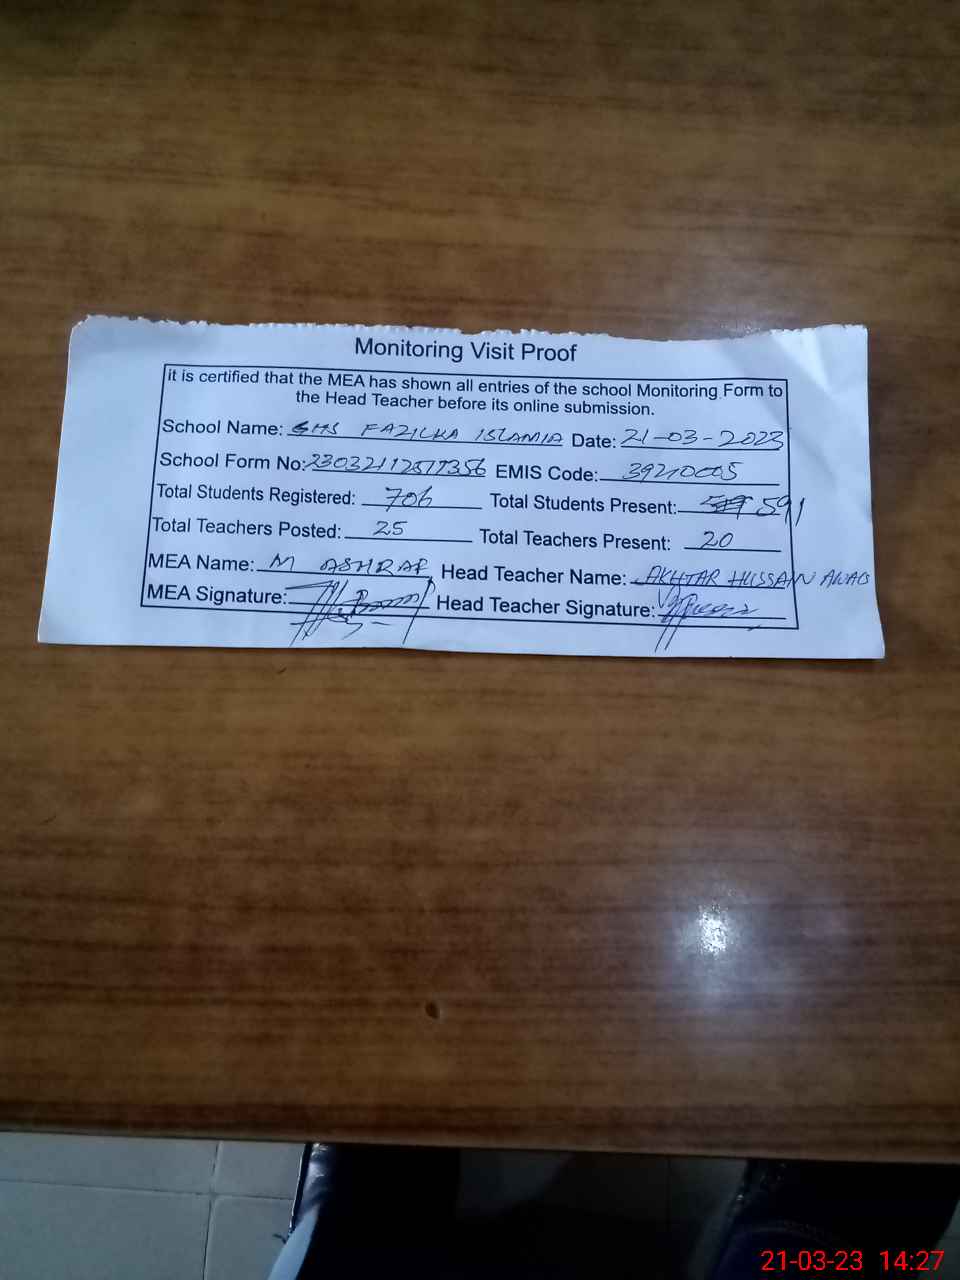 Monitoring Visit Proof
it is certified that the MEA has shown all entries of the school Monitoring Form to
the Head Teacher before its online submission.
School Name: GHS FAZILKA ISLAMIA Date: 21-03-2023
School Form No: EMIS Code: 39210005
Total Students Registered: 706 Total Students Present: 591
Total Teachers Posted: 25 Total Teachers Present: 20
MEA Name: M ASHRAF Head Teacher Name: AKHTAR HUSSAIN
MEA Signature: Head Teacher Signature:
21-03-23 14:27